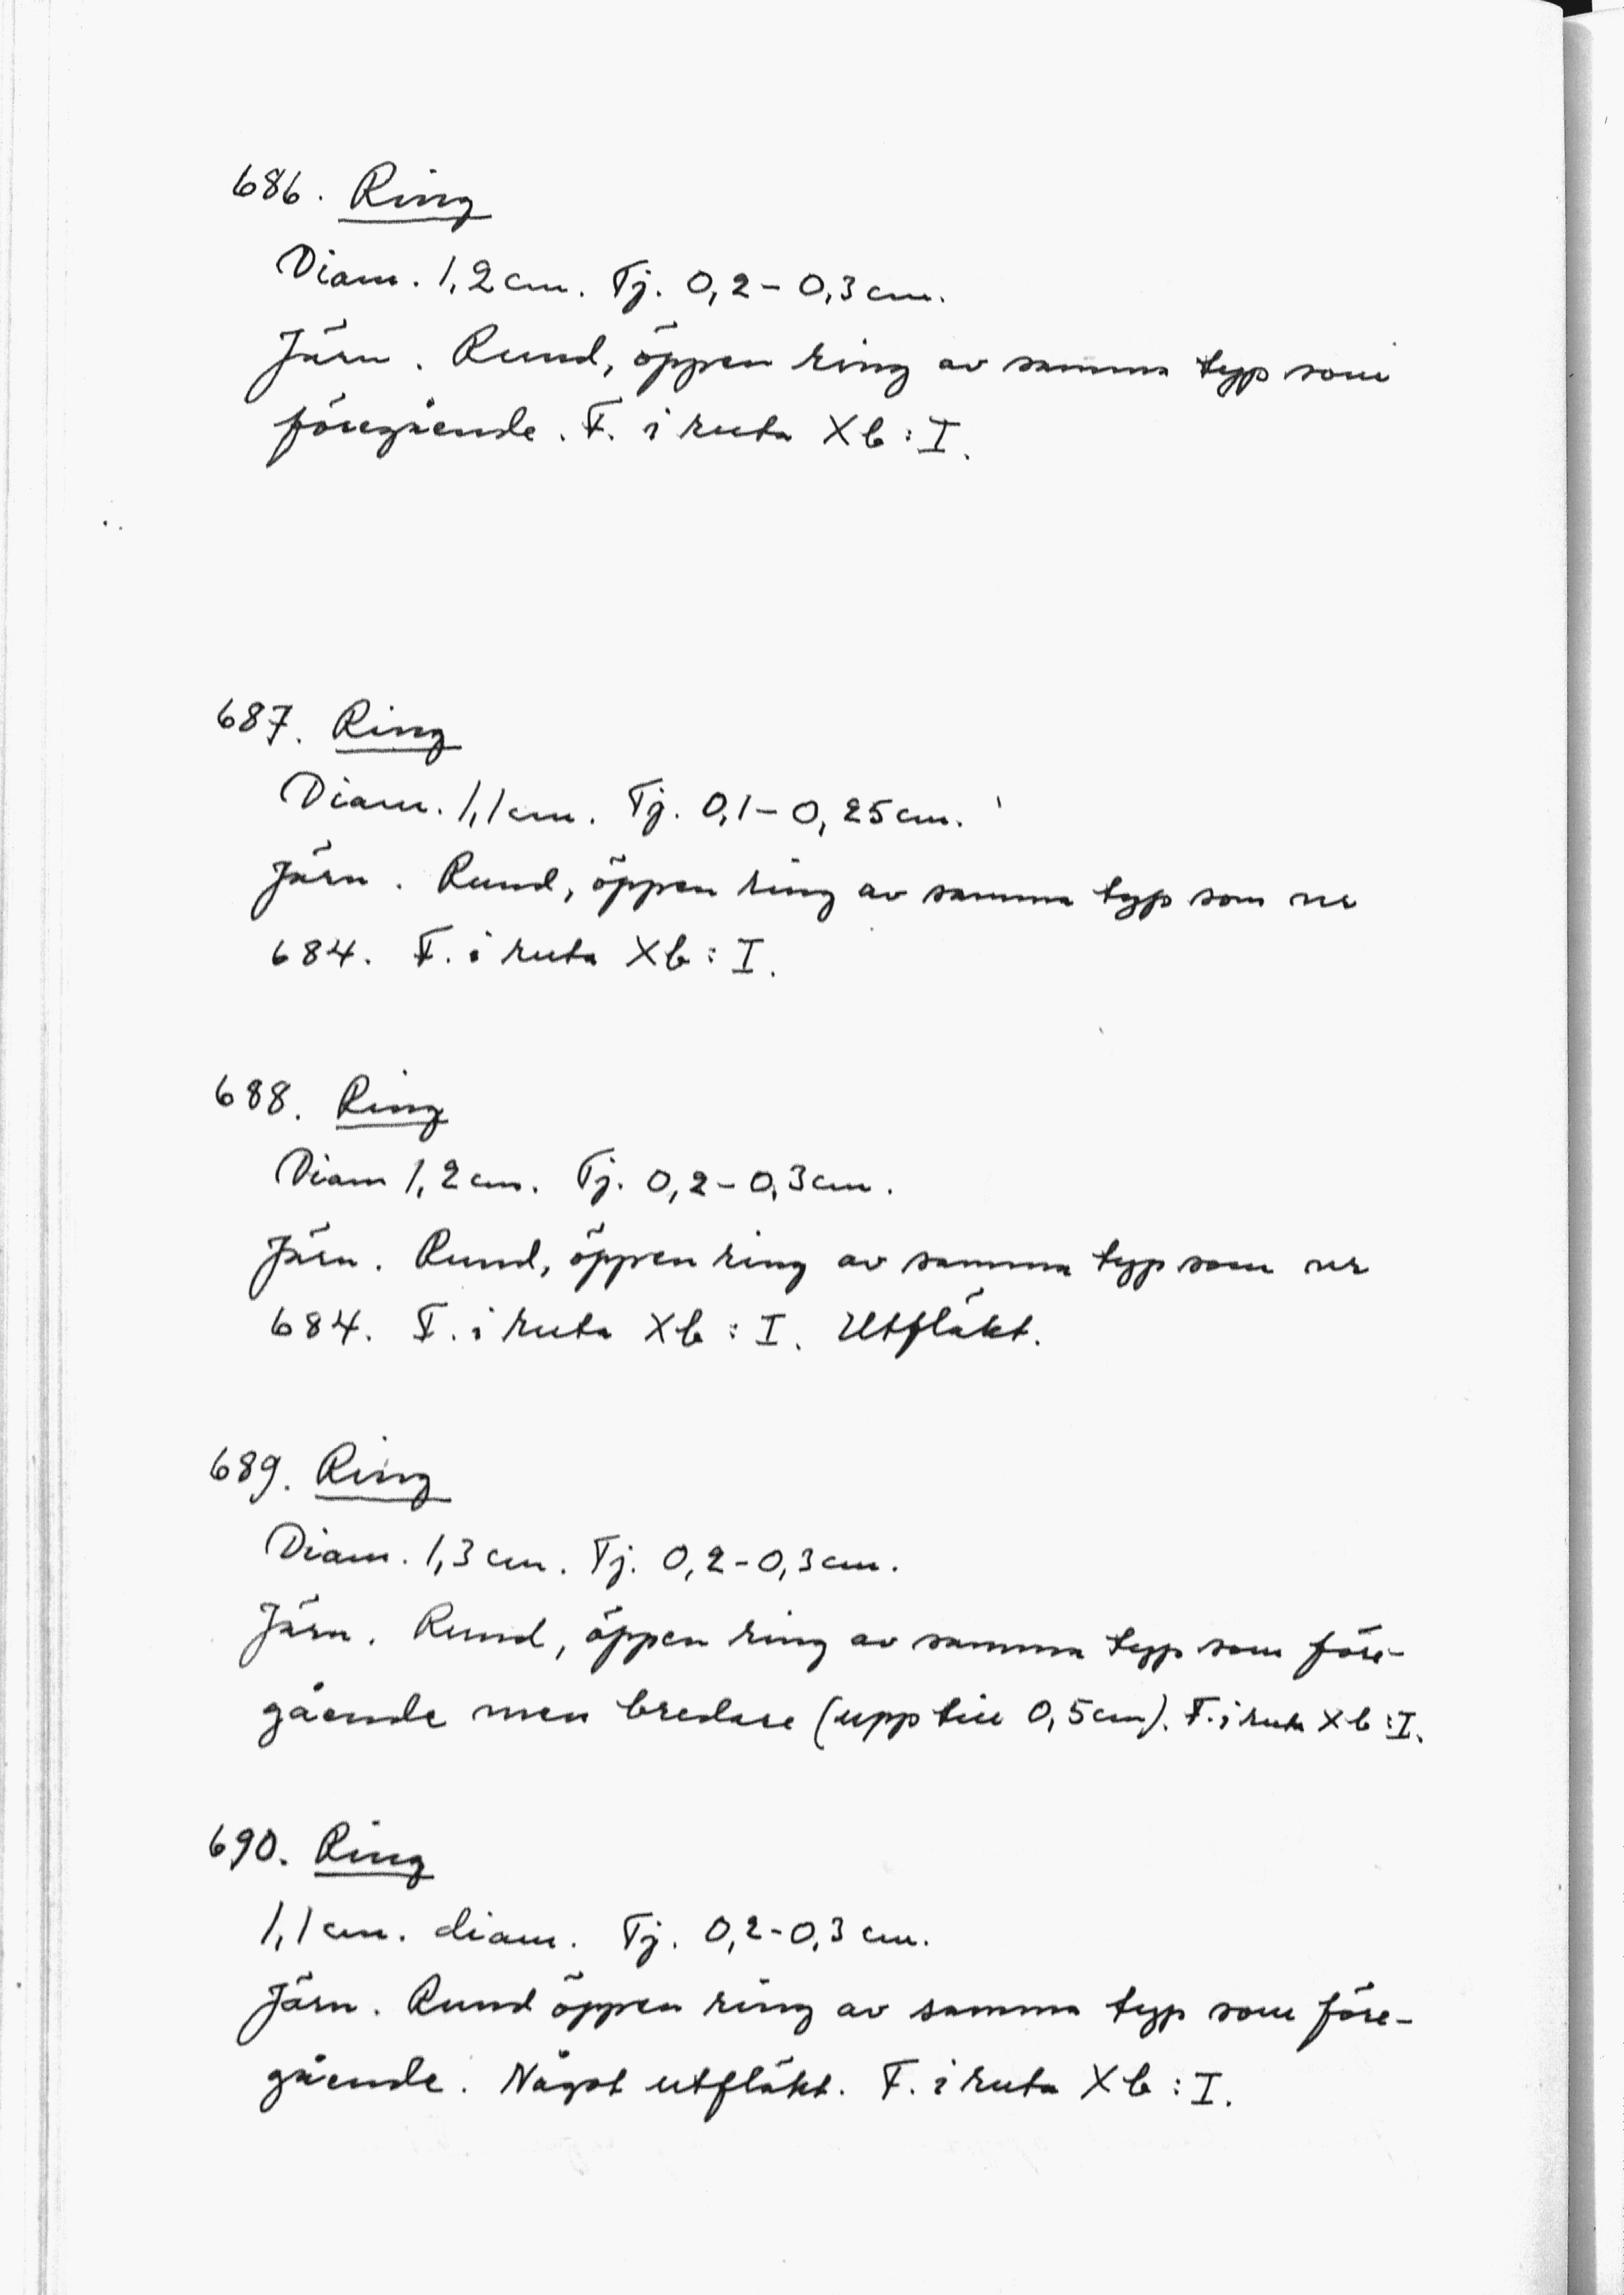 686. Ring
Diam. 1,2 cm. Tj. 0,2 - 0,3 cm.
Järn. Rund, öppen ring av samma typ som
föregående. F. i ruta Xb : I.
687. Ring
Diam. 1,1 cm. Tj. 0,1 - 0,25 cm.
Järn. Rund, öppen ring av samma typ som nr
684. F. i ruta Xb : I.
688. Ring
Diam 1,2 cm. Tj. 0,2 - 0,3 cm.
Järn. Rund, öppen ring av samma typ som nr
684. F. i ruta Xb : I. Utfläkt.
689. Ring
Diam. 1,3 cm. Tj. 0,2 - 0,3 cm.
Järn. Rund, öppen ring av samma typ som före-
gående men bredare (upp till 0,5 cm). F. i ruta Xb : I.
690. Ring
1,1 cm. diam. Tj. 0,2 - 0,3 cm.
Järn. Rund öppen ring av samma typ som före-
gående. Något utfläkt. F. i ruta Xb : I.